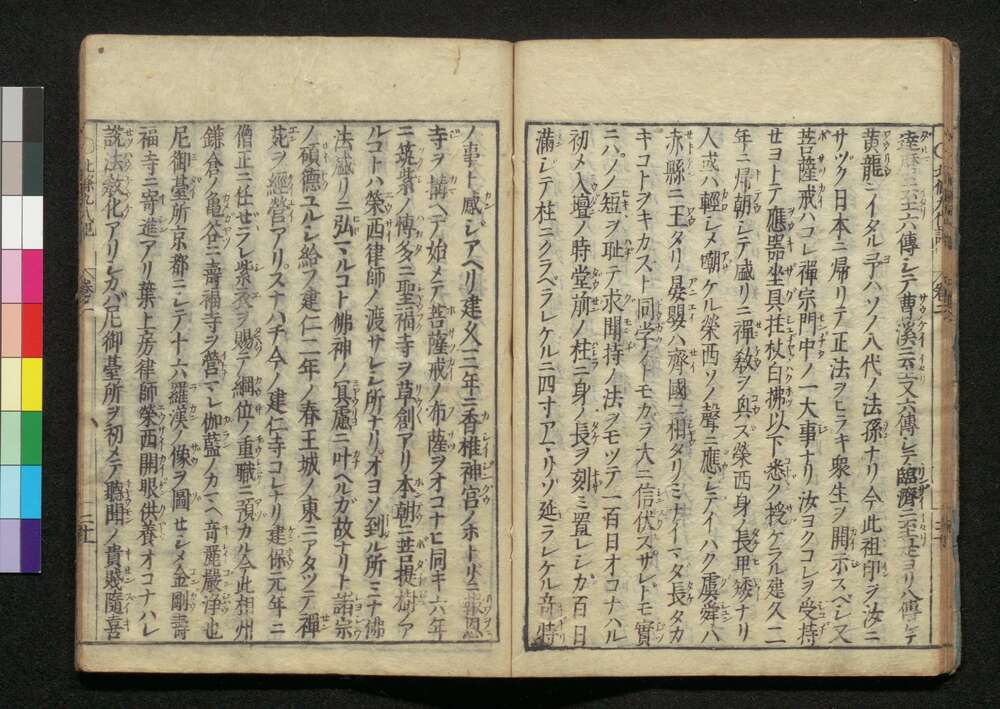 達磨ヨリ六傳シテ曹溪ニ至又六傳シテ臨濟ニ至是ヨリ八傳シテ
黄龍ニイタル予ハソノ八代ノ法孫ナリ今此祖印ヲ汝ニ
サヅク日本ニ帰リテ正法ヲヒラキ衆生ヲ開示スベシ又
菩薩戒ハコレ禪宗門中ノ一大事ナリ汝ヨクコレヲ受持
セヨトテ應器坐具拄杖白拂以下悉ク授ケラル建久二
年ニ帰朝シテ盛リニ禪敎ヲ興ス榮西身ノ長卑矮ナリ
人或ハ輕シメ嘲ケル榮西ソノ聲ニ應シテイハク虞舜ハ
赤縣ニ王タリ晏嬰ハ齊國ニ相タリミナイマダ長タカ
キコトヲキカスト同学ノトモカラ大ニ信伏スザレトモ實
ニハソノ短ヲ耻テ求聞持ノ法ヲモツテ一百日オコナハル
初メ入壇ノ時堂前ノ柱ニ身ノ長ヲ刻ミ置レシガ百日
滿レテ柱ニクラベラレケルニ四寸アマリゾ延ラレケル奇特
ノ事トカンジアヘリ建久三年ニ香椎神宮ノホトリニ報恩
寺ヲ搆ヘテ始メテ菩薩戒ノ布薩ヲオコナヒ同キ六年
ニ筑紫ノ博多ニ聖福寺ヲ草創アリ本朝ニ菩提樹アツ
ルコトハ榮西律師ノ渡サレシ所ナリオヨソ到ル所ミナ佛
法盛リニ弘マルコト佛神ノ冥慮ニ叶ヘルガ故ナリト諸宗
ノ碩德ユルシ給フ建仁二年ノ春王城ノ東ニアタツテ禪
苑ヲ經營アリスナハチ今ノ建仁寺コレナリ建保元年ニ
僧正ニ任ゼラレ紫衣ヲ賜リテ綱位ノ重職ニ預カル今此相州
鎌倉ノ亀谷ニ壽福寺ヲ營マレ伽藍ノカマヘ奇麗嚴淨也
尼御臺所京都ニシテ十六羅漢ノ像ヲ圖セシメ金剛壽
福寺ニ寄進アリ葉上房律師榮西開眼供養オコナハレ
說法敎化アリシカバ尼御臺所ヲ初メテ聽聞ノ貴賤隨喜